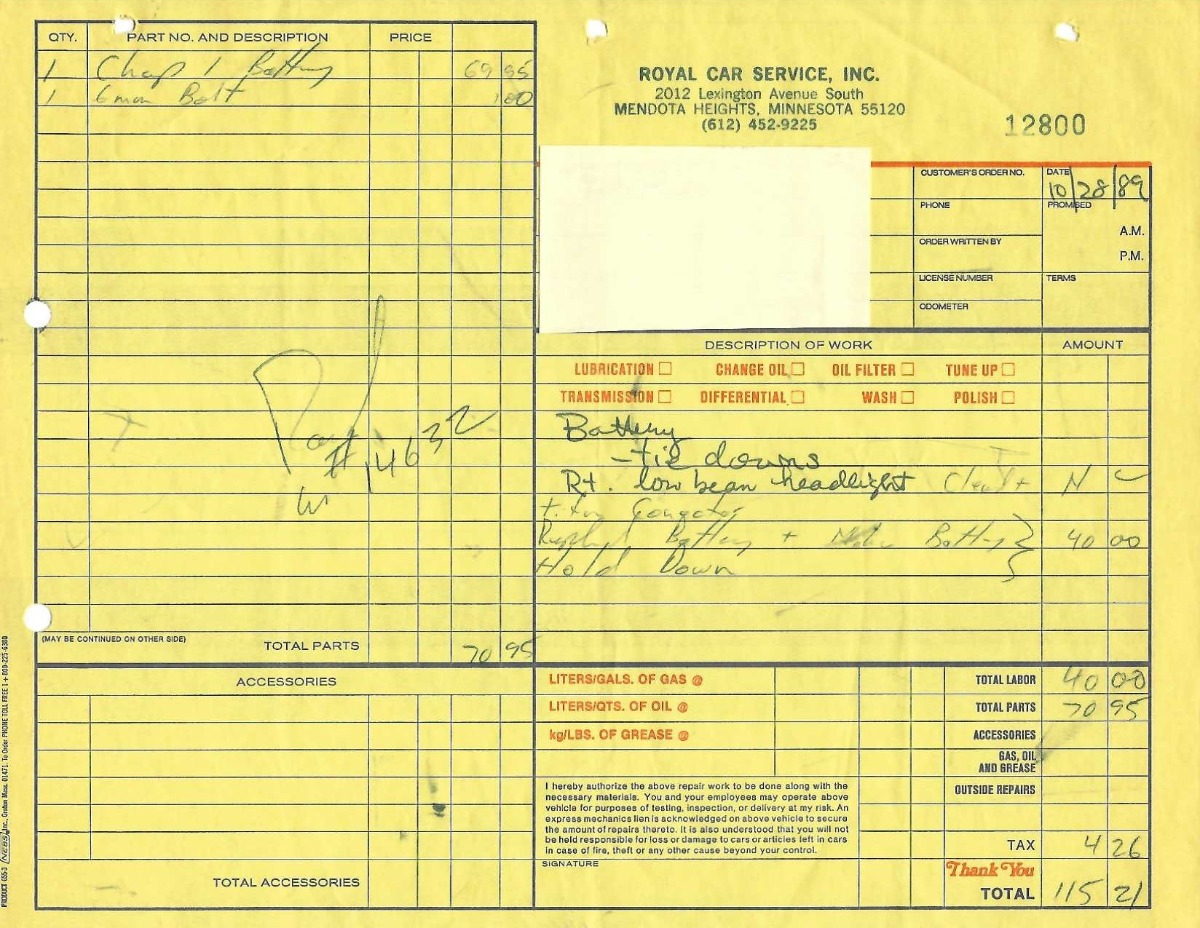 QTY. PART NO. AND DESCRIPTION PRICE
1 Chap 1 Battery 69 95
1 6mm Bolt 1 00
Paid
#14632
(MAY BE CONTINUED ON OTHER SIDE) TOTAL PARTS 70 95
ACCESSORIES
TOTAL ACCESSORIES
ROYAL CAR SERVICE, INC.
2012 Lexington Avenue South
MENDOTA HEIGHTS, MINNESOTA 55120
(612) 452-9225
12800
CUSTOMER'S ORDER NO. DATE 10/28/89
PHONE PROMISED
A.M.
ORDER WRITTEN BY
P.M.
LICENSE NUMBER TERMS
ODOMETER
DESCRIPTION OF WORK AMOUNT
LUBRICATION CHANGE OIL OIL FILTER TUNE UP
TRANSMISSION DIFFERENTIAL WASH POLISH
Battery
-tie downs
Rt. low beam headlight Clean + N C
Battery + Battery 40 00
Hold Down
LITERS/GALS. OF GAS @ TOTAL LABOR 40 00
LITERS/QTS. OF OIL @ TOTAL PARTS 70 95
kg/LBS. OF GREASE @ ACCESSORIES
GAS, OIL
AND GREASE
OUTSIDE REPAIRS
I hereby authorize the above repair work to be done along with the
necessary materials. You and your employees may operate above
vehicle for purposes of testing, inspection, or delivery at my risk. An
express mechanics lien is acknowledged on above vehicle to secure
the amount of repairs thereto. It is also understood that you will not
be held responsible for loss or damage to cars or articles left in cars
in case of fire, theft or any other cause beyond your control.
TAX 4 26
SIGNATURE
Thank You
TOTAL 115 21
PRODUCT 655-3 NEBS Inc., Groton Mass. 01471. To Order PHONE TOLL FREE 1 + 800-225-6380